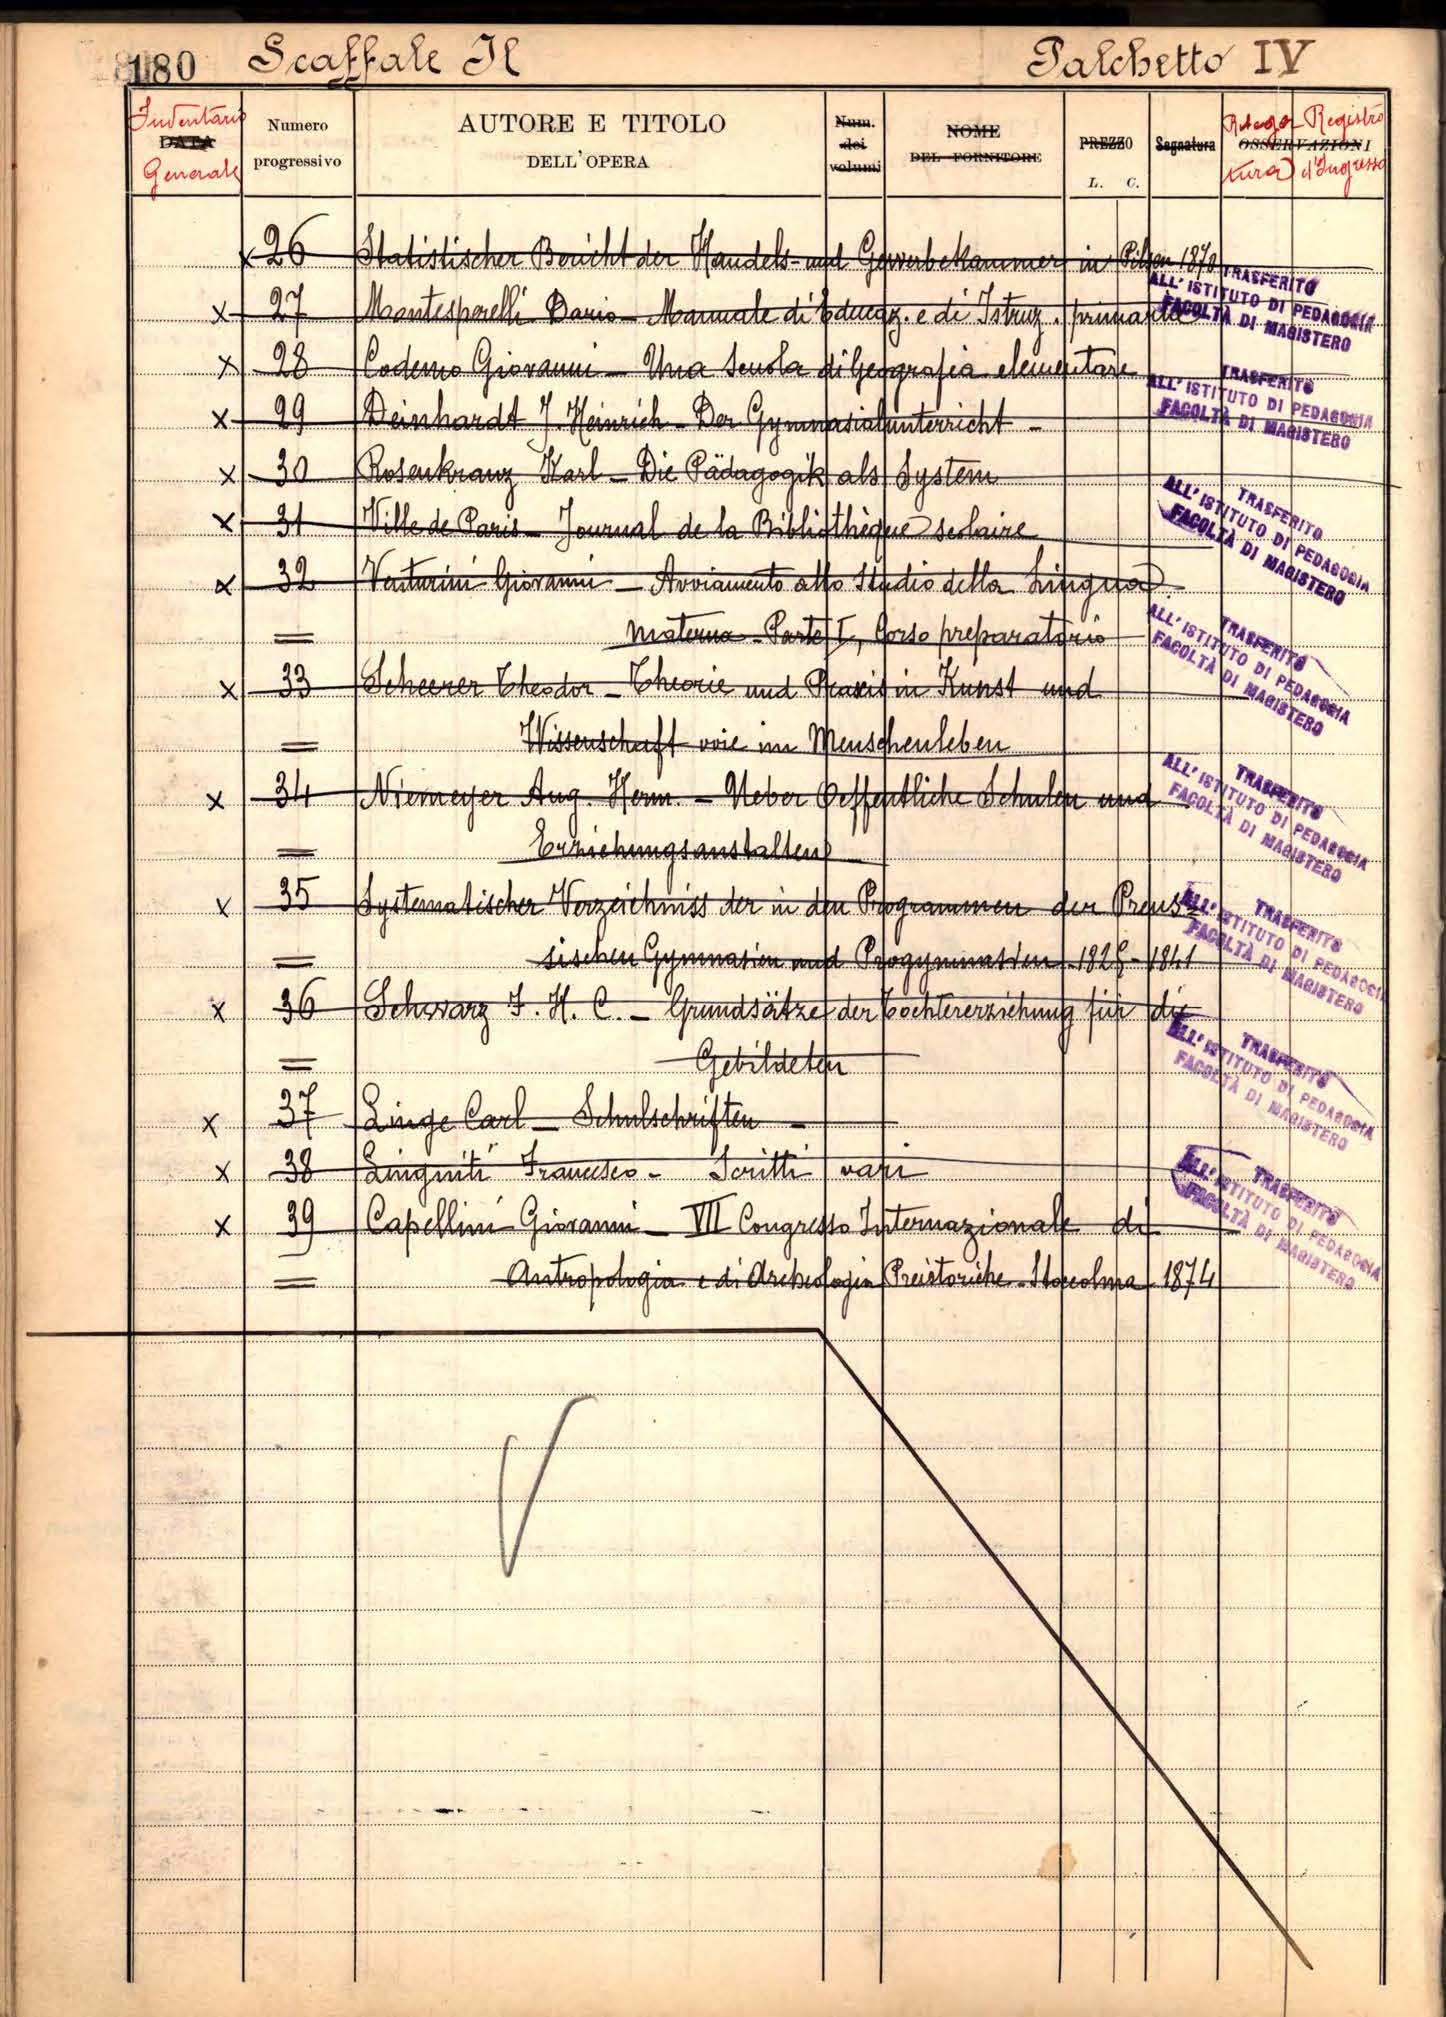 180 Scaffale II Palchetto IV
Inventario
Generale
DATA
Numero
progressivo
AUTORE E TITOLO
DELL'OPERA
Num.
dei
volumi
NOME
DEL FORNITORE
PREZZO
L. C.
Segnatura
OSSERVAZIONI
Registro
d'Ingresso
x 26 Statistischer Bericht der Handels- und Gewerbekammer in Pilsen 1870
TRASFERITO
ALL'ISTITUTO DI PEDAGOGIA
FACOLTÀ DI MAGISTERO
x 27 Montesperelli Dario - Manuale di Educaz. e di Istruz. primaria
x 28 Codemo Giovanni - Una Scuola di Geografia elementare
TRASFERITO
ALL'ISTITUTO DI PEDAGOGIA
FACOLTÀ DI MAGISTERO
x 29 Deinhardt J. Heinrich - Der Gymnasialunterricht -
x 30 Rosenkranz Karl - Die Pädagogik als System
TRASFERITO
ALL'ISTITUTO DI PEDAGOGIA
FACOLTÀ DI MAGISTERO
x 31 Ville de Paris - Journal de la Bibliothèque scolaire
x 32 Venturini Giovanni - Avviamento allo Studio della Lingua
= materna - Parte I, Corso preparatorio
TRASFERITO
ALL'ISTITUTO DI PEDAGOGIA
FACOLTÀ DI MAGISTERO
x 33 Scheerer Theodor - Theorie und Praxis in Kunst und
= Wissenschaft wie im Menschenleben
x 34 Niemeyer Aug. Herm. - Ueber Oeffentliche Schulen und
TRASFERITO
ALL'ISTITUTO DI PEDAGOGIA
FACOLTÀ DI MAGISTERO
= Erziehungsanstalten
x 35 Systematischer Verzeichniss der in den Programmen der Preus=
TRASFERITO
ALL'ISTITUTO DI PEDAGOGIA
FACOLTÀ DI MAGISTERO
= sischen Gymnasien und Progymnasien 1825-1841
x 36 Schwarz F. H. C. - Grundsätze der Töchtererziehung für die
= Gebildeten
TRASFERITO
ALL'ISTITUTO DI PEDAGOGIA
FACOLTÀ DI MAGISTERO
x 37 Linge Carl - Schulschriften -
x 38 Linguiti Francesco - Scritti vari
TRASFERITO
ALL'ISTITUTO DI PEDAGOGIA
FACOLTÀ DI MAGISTERO
x 39 Capellini Giovanni - VII Congresso Internazionale di
= Antropologia e di Archeologia Preistoriche - Stoccolma 1874